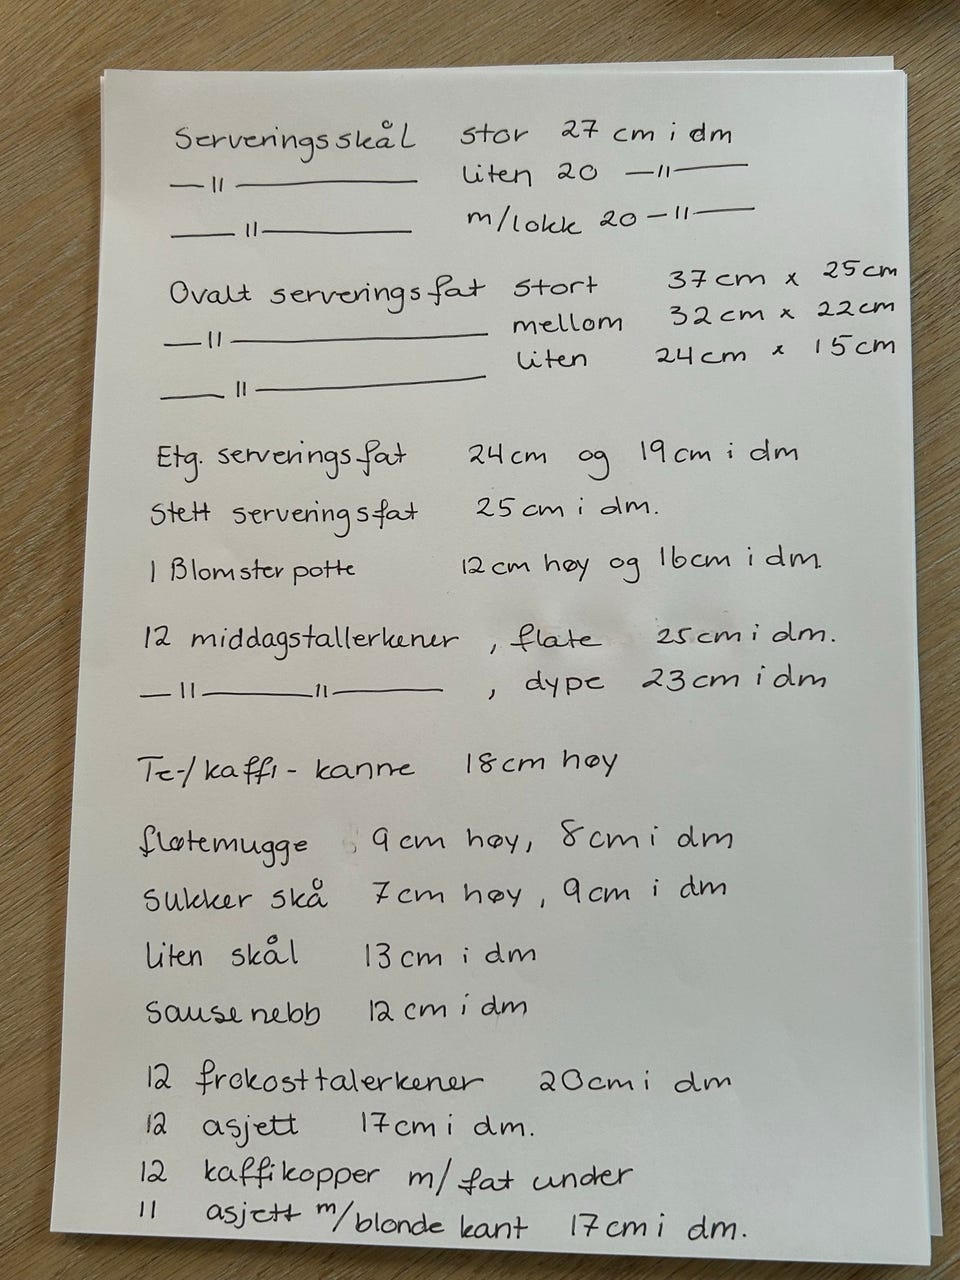 Serveringsskål stor 27 cm i dm
—"— liten 20 —"—
—"— m/lokk 20 —"—
Ovalt serveringsfat stort 37cm x 25cm
—"— mellom 32cm x 22cm
—"— liten 24cm x 15cm
Etg. serveringsfat 24cm og 19cm i dm
Stett serveringsfat 25cm i dm.
1 Blomsterpotte 12cm høy og 16cm i dm.
12 middagstallerkener, flate 25cm i dm.
—"— —"—, dype 23cm i dm
Te-/kaffi-kanne 18cm høy
fløtemugge 9cm høy, 8cm i dm
Sukker skå 7cm høy, 9cm i dm
liten skål 13cm i dm
Sausenebb 12cm i dm
12 frokosttalerkener 20cm i dm
12 asjett 17cm i dm.
12 kaffikopper m/fat under
11 asjett m/blonde kant 17cm i dm.